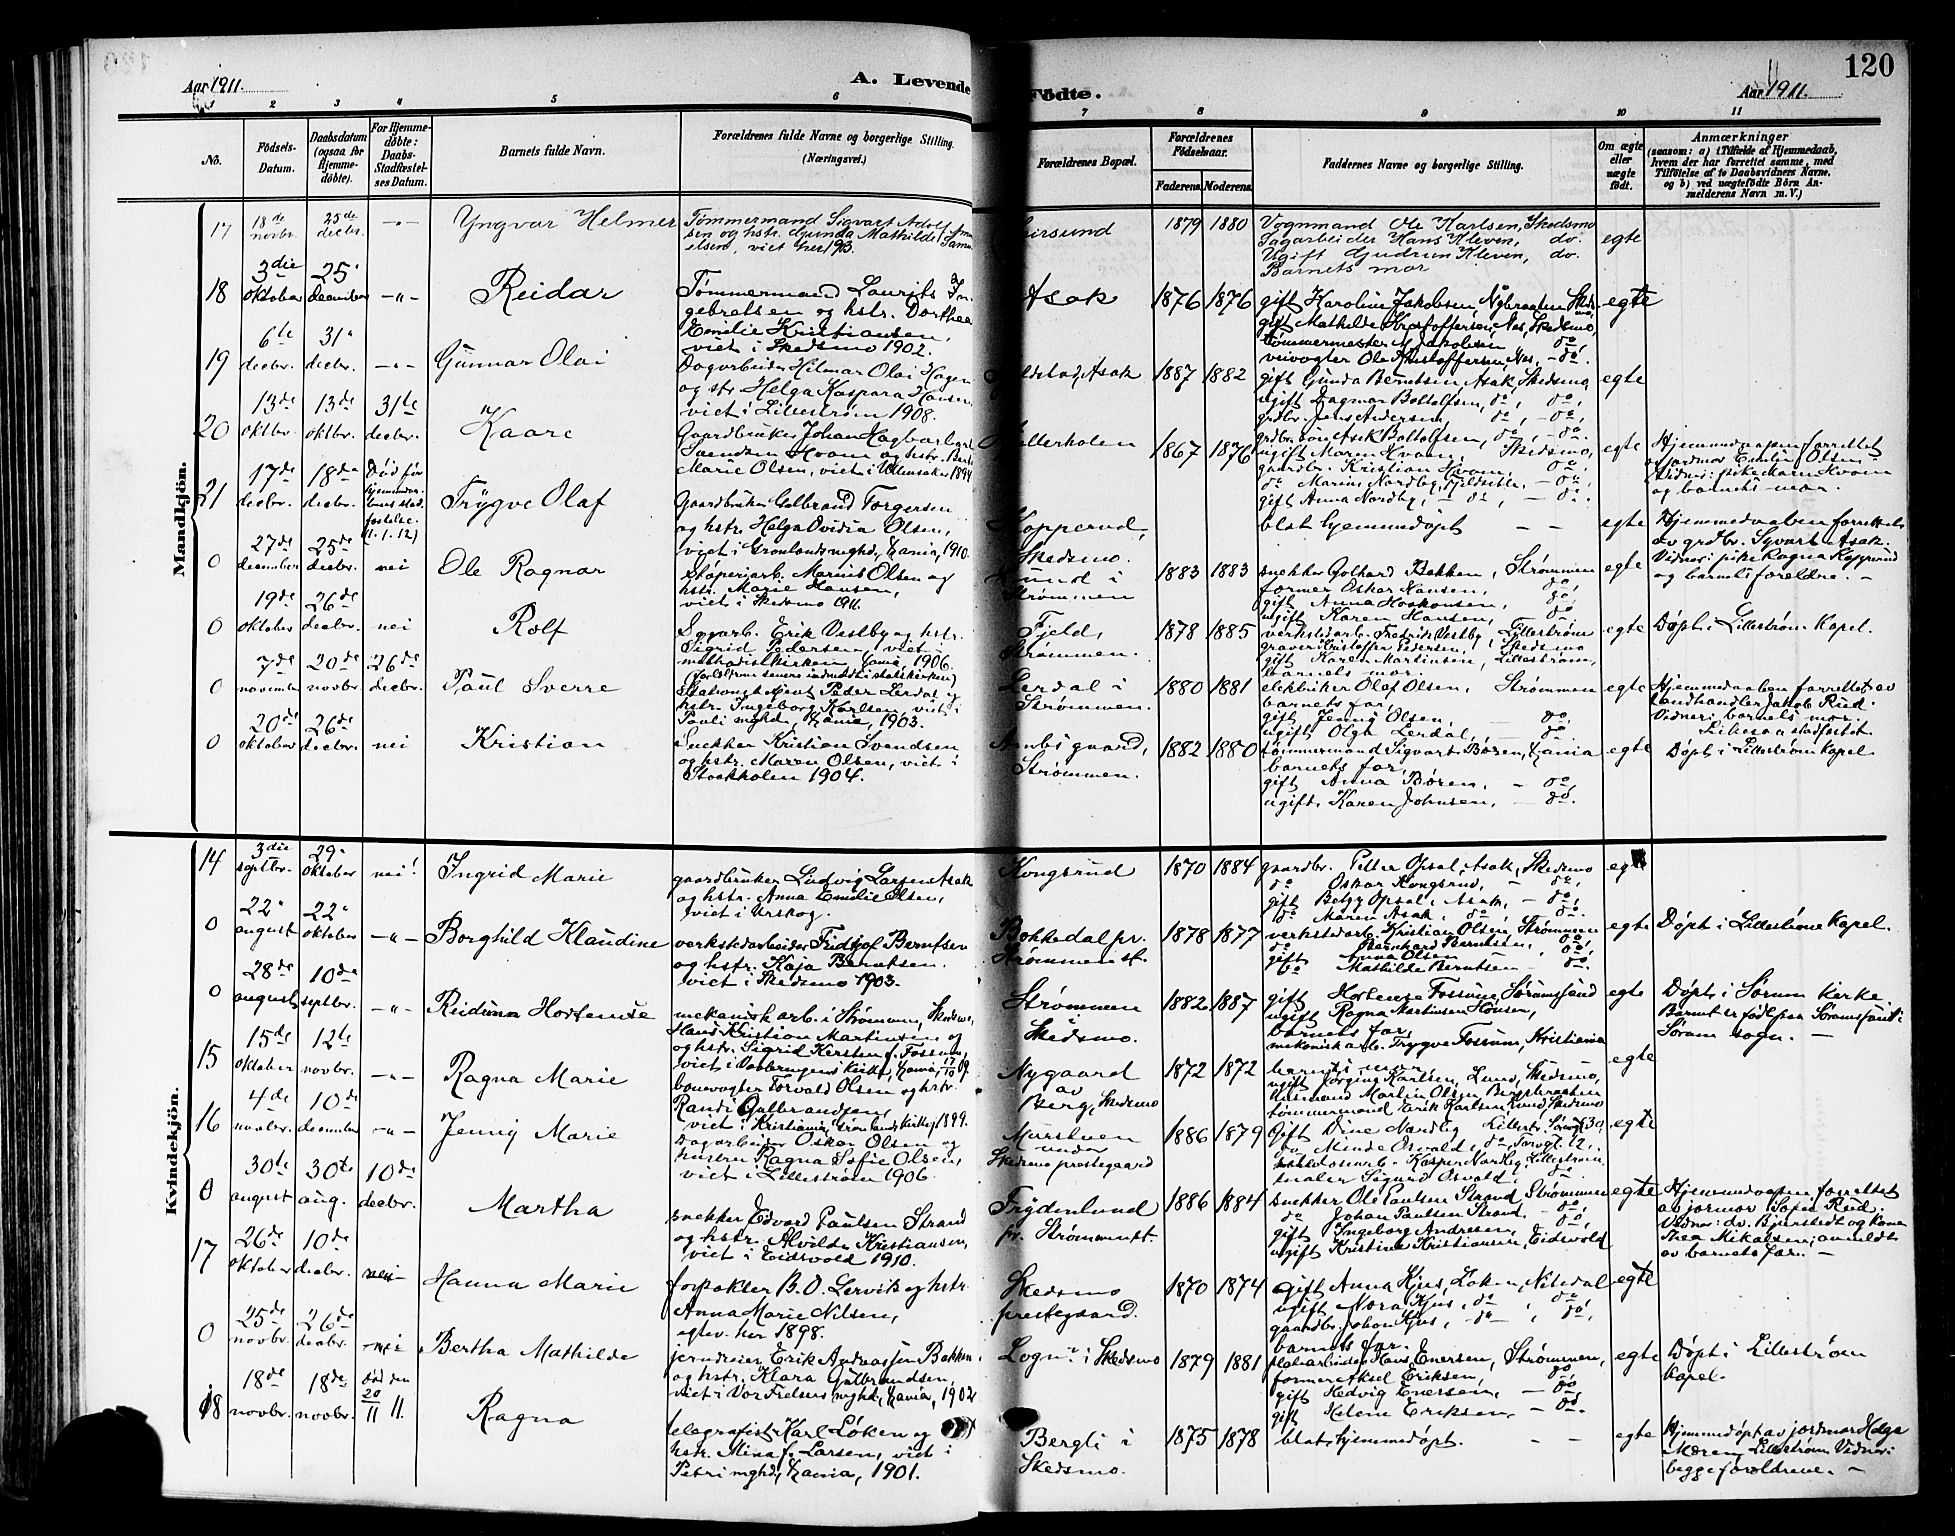 120
Aar 1911.
A. Levende Fødte.
Aar 1911.
1 2 3 4 5 6 7 8 9 10 11
No.
Födsels-Datum.
Daabsdatum (ogsaa for Hjemme-döbte).
For Hjemme-döbte: Daabs-Stadfæstel-ses Datum.
Barnets fulde Navn.
Forældrenes fulde Navne og borgerlige Stilling. (Næringsvei.)
Forældrenes Bopæl.
Forældrenes Födselsaar.
Faderens. Moderens.
Faddernes Navne og borgerlige Stilling.
Om ægte eller uægte født.
Anmærkninger
(saasom: a) i Tilfælde af Hjemmedaab, hvem der har forrettet samme, med Tilföielse af to Daabsvidners Navne, og b) ved uægtefödte Börn An-melderens Navn m. V.)
Mandkjön.
17 18de novbr. 25de decbr. -"- Yngvar Helmer
Tømmermand Sigvart Adolf
sen og hstr. Gunda Mathilde
elsen, viet her
1879 1880
Vognmand Ole Karlsen, Skedsmo
Sagarbeider Hans Kleven, do.
Ugift Gudrun Kleven, do.
Barnets mor
egte
18 3die oktober 25 december -"- Reidar
Tømmermand Laurits In-
gebretsen og hstr. Dorthea
Emilie Kristiansen,
viet i Skedsmo 1902.
Asak 1876 1876
gift Karoline Jakobsen, Nybraaten Skedsmo,
gift Mathilde Kristoffersen, Nes, Skedsmo
tømmermester Jakobsen do,
veivogter Ole Kristoffersen, Nes, - do.
egte
19 6te decbr. 31 decbr. -"- Gunnar Olai
Dagarbeider Hilmar Olai Hagen
og hstr. Helga Kaspara Hansen
viet i Lillestrøm 1908.
Asak 1887 1882
gift Gunda Berntsen, Asak, Skedsmo,
ugift Dagmar Boltolfsen, do, do,
grdbr. Jens Andersen, do, - do,
grdbr. søn Asak Boltolfsen, do, - do.
egte
20 13de oktbr. 13de oktbr. 31te decbr. Kaare
Gaardbruker Johan Hagbart
Svendsen Hvam og hstr. Berte
Marie Olsen, viet i Ullensaker 1894
1867 1876
ugift Maren Hvam, Skedsmo,
gaardbr. Kristian Hvam, do,
do Marius Nordby, Fjeldsæter, - do,
gift Anna Nordby, - do, - do.
egte
Hjemmedaapen forrettet
av jordmor Emilie Olsen
Vidner: pike Maren Hvam
og barnets mor.
21 17de decbr. 18de decbr. Død før hjemmedaabens stadfæstelse. (1.1.12) Trygve Olaf
Gaardbruker Gulbrand Torgersen
og hstr. Helga Ovidia Olsen,
viet i Grønlands mghd, Kania, 1910.
Kopperud, Skedsmo.
blot hjemmedøpt - -
egte
Hjemmedaaben forrettet
av grdbr. Syvart Asak.
Vidner: pike Ragna Kopperud
og barnets forældre. -
0 27de december 25de decbr. nei Ole Ragnar
Støperiarb. Marius Olsen og
hstr. Marie Hansen,
viet i Skedsmo 1911.
Strømmen
1883 1883
snekker Gothard Bakken, Strømmen
former Oskar Hansen, do,
gift Anna Haakonsen, do,
ugift Karen Hansen, do,
egte
0 19de oktober 26de decbr. nei Rolf
Sagarb. Erik Vestby og hstr.
Sigrid Pedersen, viet i
methodistkirken Kania, 1906.
Fjeld, Strømmen.
1878 1885
verkstedarb. Fredrik Vestby, Lillestrøm
graver Kristoffer Pedersen, Skedsmo
gift Karen Martinsen, Lillestrøm,
barnets mor.
egte
Døpt i Lillestrøm Kapel.
0 7de november 20de novbr. 26de decbr. Paul Sverre
Stationsbetjent Peder Lerdal og
hstr. Ingeborg Karlsen, viet i
Pauli mghd, Kania, 1903.
Lerdal i Strømmen.
1880 1881
elektriker Olaf Olsen, Strømmen
barnets far,
gift Jenny Olsen, do,
ugift Olga Lerdal, - do.
egte
Hjemmedaaben forrettet av
Landhandler Jakob Ried.
Vidner: barnets mor.
0 20de oktober 26de decbr. nei Kristian
Snekker Kristian Svendsen
og hstr. Maren Olsen, viet i
Stockholm 1904.
Strømmen.
1882 1880
tømmermand Sigvart Børen, Kania
barnets far,
gift Anna Børen, - do,
ugift Karen Johnsen, - do.
egte
Døpt i Lillestrøm Kapel
Kvindekjön.
14 3die septbr. 29 oktober nei! Ingrid Marie
gaardbruker Ludvig Larsen Asak
og hstr. Anna Emilie Olsen,
viet i Urskog.
Kongsrud 1870 1884
gaardbr. Petter Opsal, Asak, Skedsmo
do Oskar Kongsrud, - do,
gift Betzy Opsal, Asak, - do,
do Maren Asak, do, - do.
egte
0 22 august 22 oktober -"- Borghild Klaudine
verkstedarbeider Fridtjof Berntsen
og hstr. Kaja Berntsen.
viet i Skedsmo 1903.
Bokkedal pr. Strømmen st.
1878 1877
verkstedarb. Kristian Olsen, Strømmen
do Bernhard Berntsen, do,
gift Anna Olsen do,
do Mathilde Berntsen - do.
egte
Døpt i Lillestrøm Kapel.
0 28de august 10de septbr. -"- Reiduna Hortense
mekanisk arb. i Strømmen, Skedsmo,
Hans Kristian Martinsen og
og hstr. Sigrid Kirsten f. Fossum,
viet i Vaalerengens Kirke, Kania,
Strømmen i Skedsmo.
1882 1887
gift Hortense Fossum, Sørumsand
ugift Ragna Martinsen Hansen,
barnets far,
mekanisk arb. Trygve Fossum, Kristiania
egte
Døpt i Sørum Kirke.
Barnet er født paa Sørumsand i
Sørum sogn. -
15 15de oktober 12te novbr. -"- Ragna Marie
banevogter Torvald Olsen og hstr.
Randi Gulbrandsen,
viet i Kristiania, Grønlands Kirke, 1899.
Nygaard av Berg, Skedsmo
1872 1872
barnets mor
ugift Jørgine Karlsen, Lund, Skedsmo,
Husmand Martin Olsen Bergsbraaten
tømmermand Erik Karlsen Lund Skedsmo
egte
16 4de novbr. 10de december -"- Jenny Marie
Dagarbeider Oskar Olsen og
hustru Ragna Sofie Olsen,
viet i Lillestrøm 1906.
Murstuen under Skedsmo prestegaard
1886 1879
Gift Dine Nordlig Lillestr.
Minda Osvald, do,
Kasper Nordlig, Lillestrøm
maler Sigurd Osvald, do.
egte
0 30te august 30te aug. 10de decbr. Martha
snekker Edvard Paulsen Strand
og hstr. Alvilde Kristiansen,
viet i Eidsvold 1910.
Frydenlund pr. Strømmen st.
1886 1884
snekker Ole Paulsen Strand Strømmen
do Johan Paulsen Strand. - do,
gift Ingeborg Andresen, do,
ugift Kristine Kristiansen, Eidsvold
egte
Hjemmedaapen forrettet
av jormor Sofie Ried.
Vidner: dr. Bjerstedt og Kone
Thea Mikalsen; anmeldt
av barnets far. -
17 26de oktober 10de decbr. nei Hanna Marie
forpakter B. O. Lervik og hstr.
Anna Marie Nilsen,
egtev. her 1898.
Skedsmo prestegaard.
1870 1874
gift Anna Kjus, Løken, Nitedal
ugift Nora Kjus, do, do,
gaardbr. Johan Kjus, - do - do,
barnets far.
egte
0 25de novbr. 26de decbr. nei Bertha Mathilde
jerndreier Erik Andreassen Bakken
og hstr. Klara Gulbrandsen,
viet i Vor Frelsers mghd, Kania, 1902
Logn i Skedsmo
1879 1881
Hans Enersen, Strømmen,
former Aksel Eriksen, do
gift Hedvig Enersen, - do,
gift Helene Eriksen, - do.
egte
Døpt i Lillestrøm Kapel.
18 18de novbr. 18de novbr. død den 20/11 11. Ragna
telegrafist Karl Løken og
hstr. Mina f. Larsen, viet i
Petri mghd, Kania, 1901.
Bergli i Skedsmo.
1875 1878
blot hjemmedøpt. - -
egte
Hjemmedøpt av jordmor Helga
Moren, Lillestrøm Vidner:
begge forældrene. -